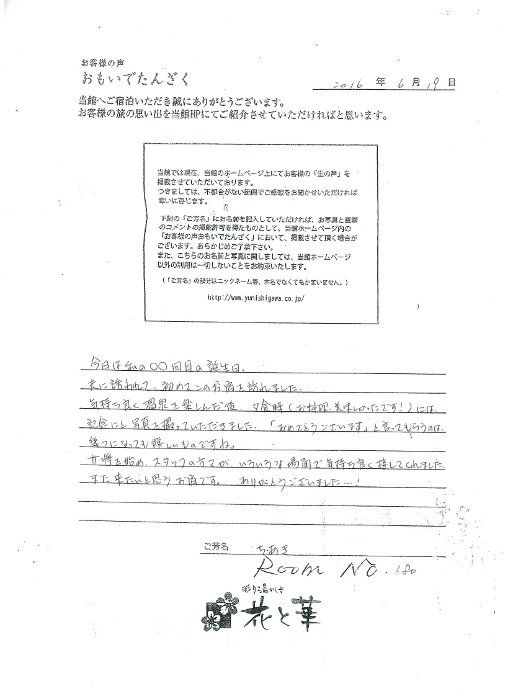 お客様の声
おもいでたんざく
2016 年 6 月 19 日
当館へご宿泊いただき誠にありがとうございます。
お客様の旅の思い出を当館HPにてご紹介させていただければと思います。
当館では現在、当館のホームページ上にてお客様の「生の声」を
掲載させていただいております。
つきましては、不都合がない範囲でご感想をお聞かせいただければ
幸いに存じます。
下記の「ご芳名」にお名前を記入していただければ、お写真と直筆
のコメントの掲載許可を得たものとして、当館ホームページ内の
「お客様の声おもいでたんざく」において、掲載させて頂く場合が
ございます。あらかじめご了承下さい。
また、こちらのお名前と写真に関しましては、当館ホームページ
以外の利用は一切しないことをお約束いたします。
(「ご芳名」の部分はニックネーム等、本名でなくてもかまいません。)
http://www.yunishigawa.co.jp/
今日は私の〇〇回目の誕生日。
夫に誘われて、初めてこのお宿を訪れました。
気持ち良く温泉を楽しんだ後、夕食時(お料理、美味しかったです!)には、
記念にと写真を撮っていただきました。「おめでとうございます」と言ってもらうのは、
幾つになっても嬉しいものですね。
女将を始め、スタッフの方々が、いろいろな場面で気持ち良く接してくれました
また来たいと思うお宿です。ありがとうございました…!
ご芳名 ちあき
Room No. 180
彩り湯かしき
花と華